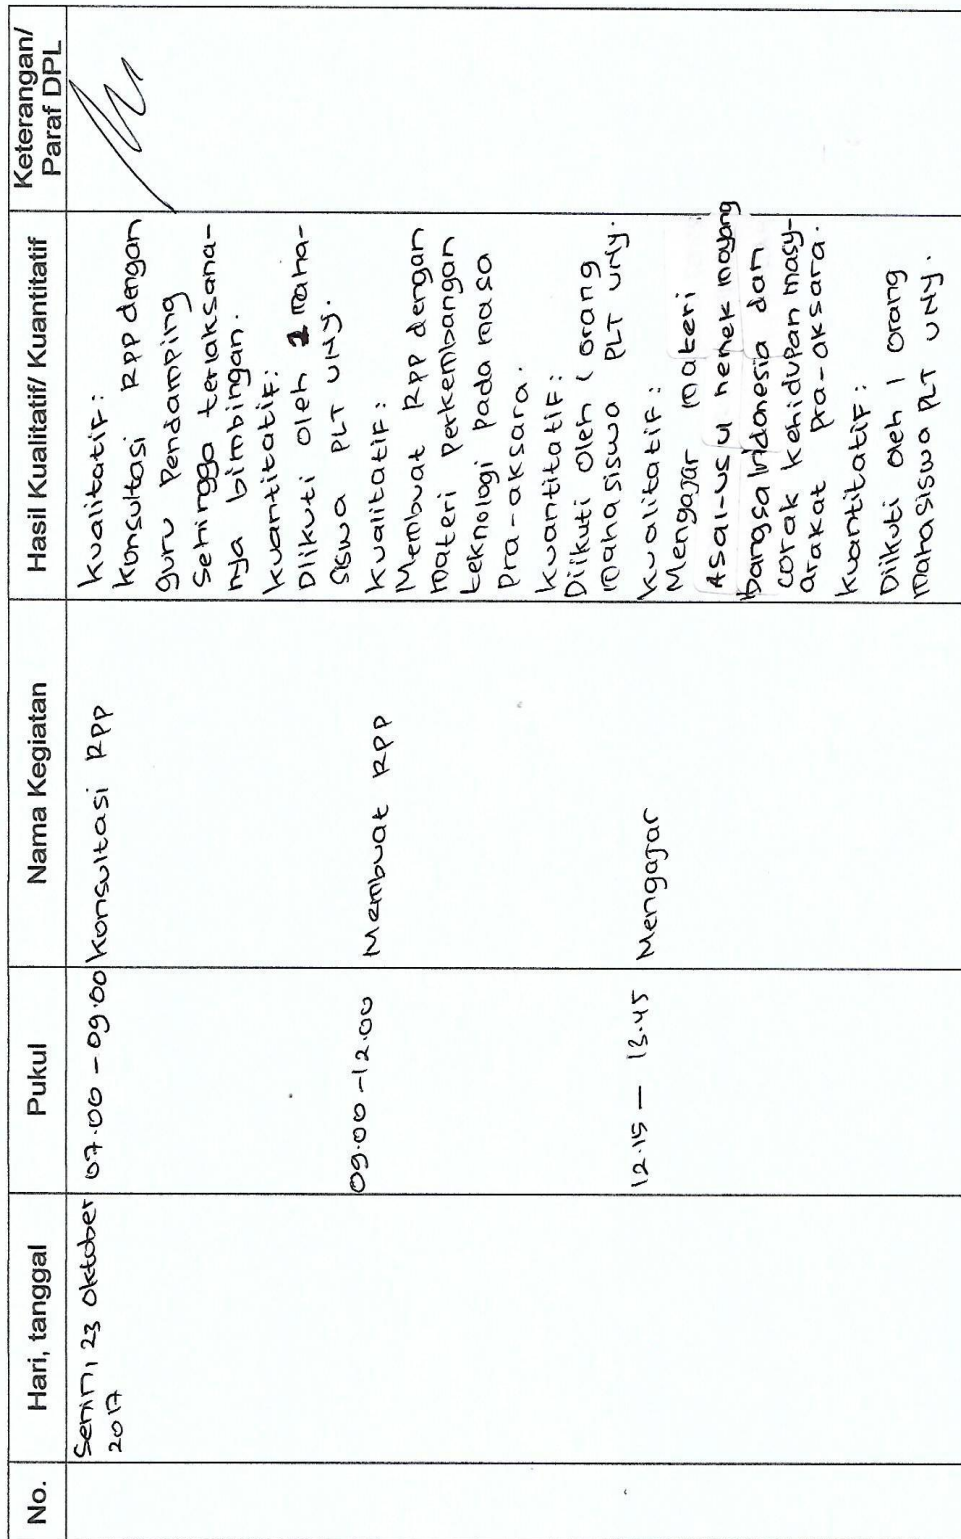 No.
Hari, tanggal
Pukul
Nama Kegiatan
Hasil Kualitatif/ Kuantitatif
Keterangan/
Paraf DPL
Senin, 23 Oktober
2017
07.00 - 09.00
Konsultasi RPP
Kualitatif:
Konsultasi RPP dengan
guru Pendamping
sehingga terlaksana-
nya bimbingan.
Kuantitatif:
Diikuti oleh 1 maha-
siswa PLT UNY.
09.00 - 12.00
Membuat RPP
Kualitatif:
Membuat RPP dengan
materi Perkembangan
teknologi pada masa
Pra-aksara.
Kuantitatif:
Diikuti oleh 1 orang
mahasiswa PLT UNY.
12.15 - 13.45
Mengajar
Kualitatif:
Mengajar materi
Asal-usul nenek moyang
bangsa Indonesia dan
corak kehidupan masy-
arakat pra-aksara.
Kuantitatif:
Diikuti oleh 1 orang
mahasiswa PLT UNY.